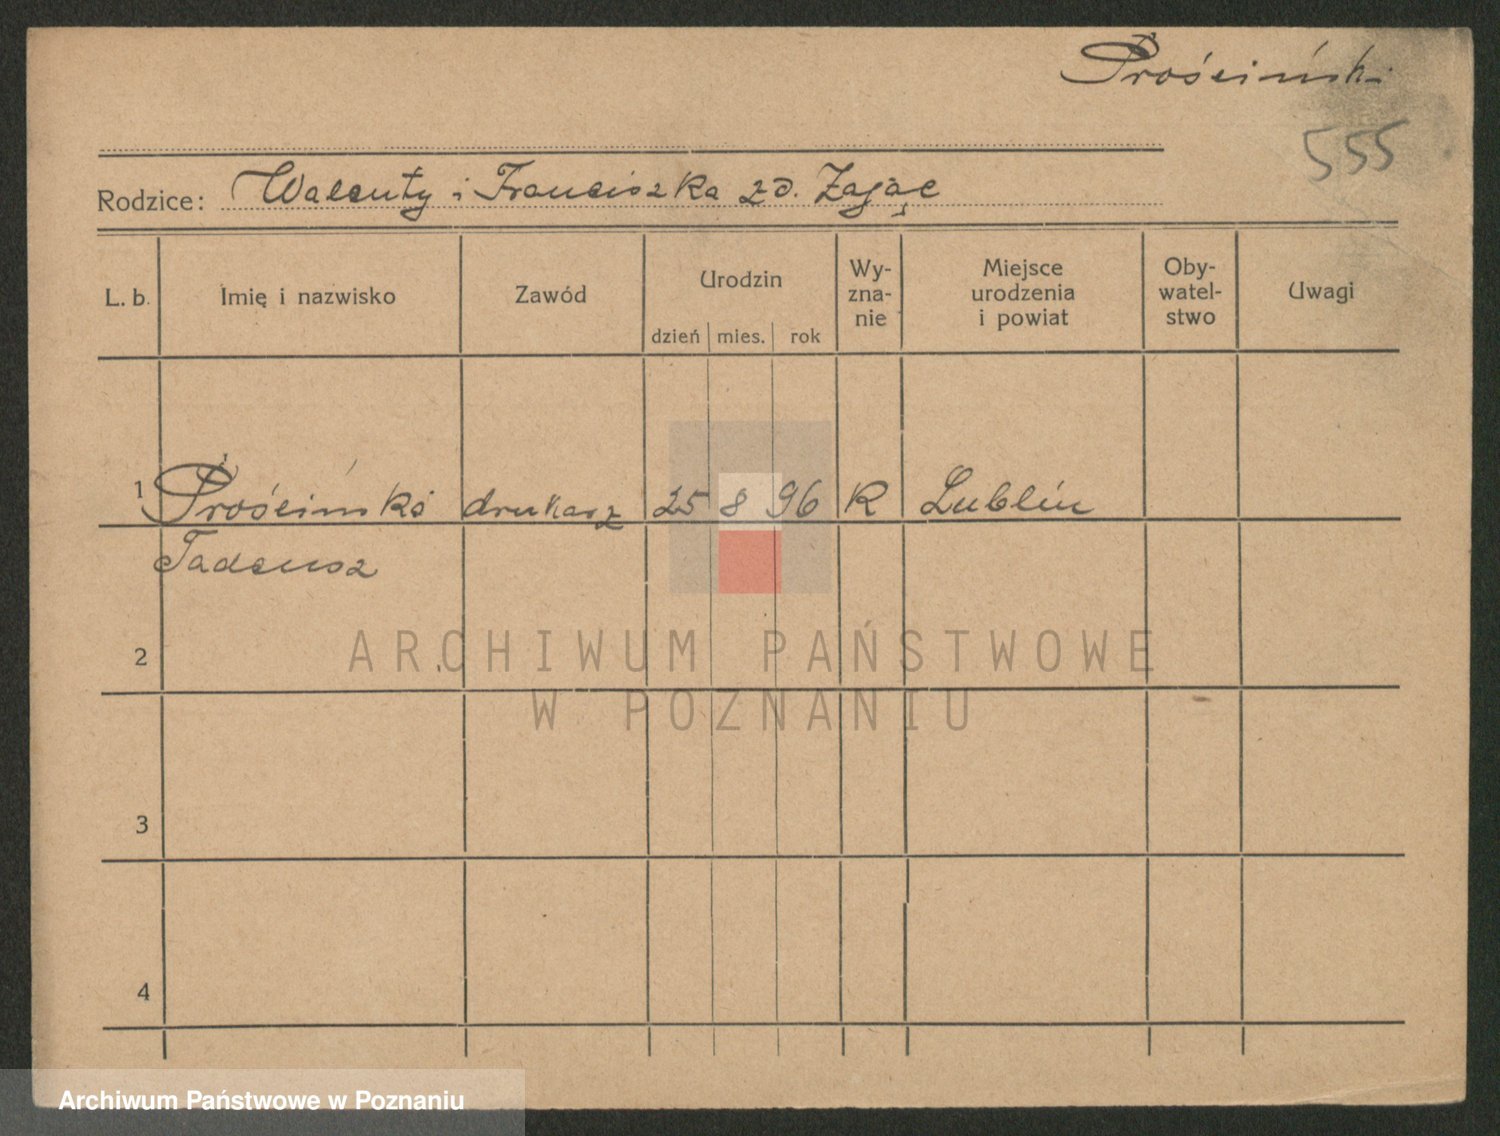 Prościński
555
Rodzice: Walenty i Franciszka zd. Zając
L. b. Imię i nazwisko Zawód Urodzin dzień mies. rok Wy-zna-nie Miejsce urodzenia i powiat Oby-watel-stwo Uwagi
1 Prościński drukarz 25 8 96 R Lublin
Tadeusz
2
ARCHIWUM PAŃSTWOWE
W POZNANIU
3
4
Archiwum Państwowe w Poznaniu